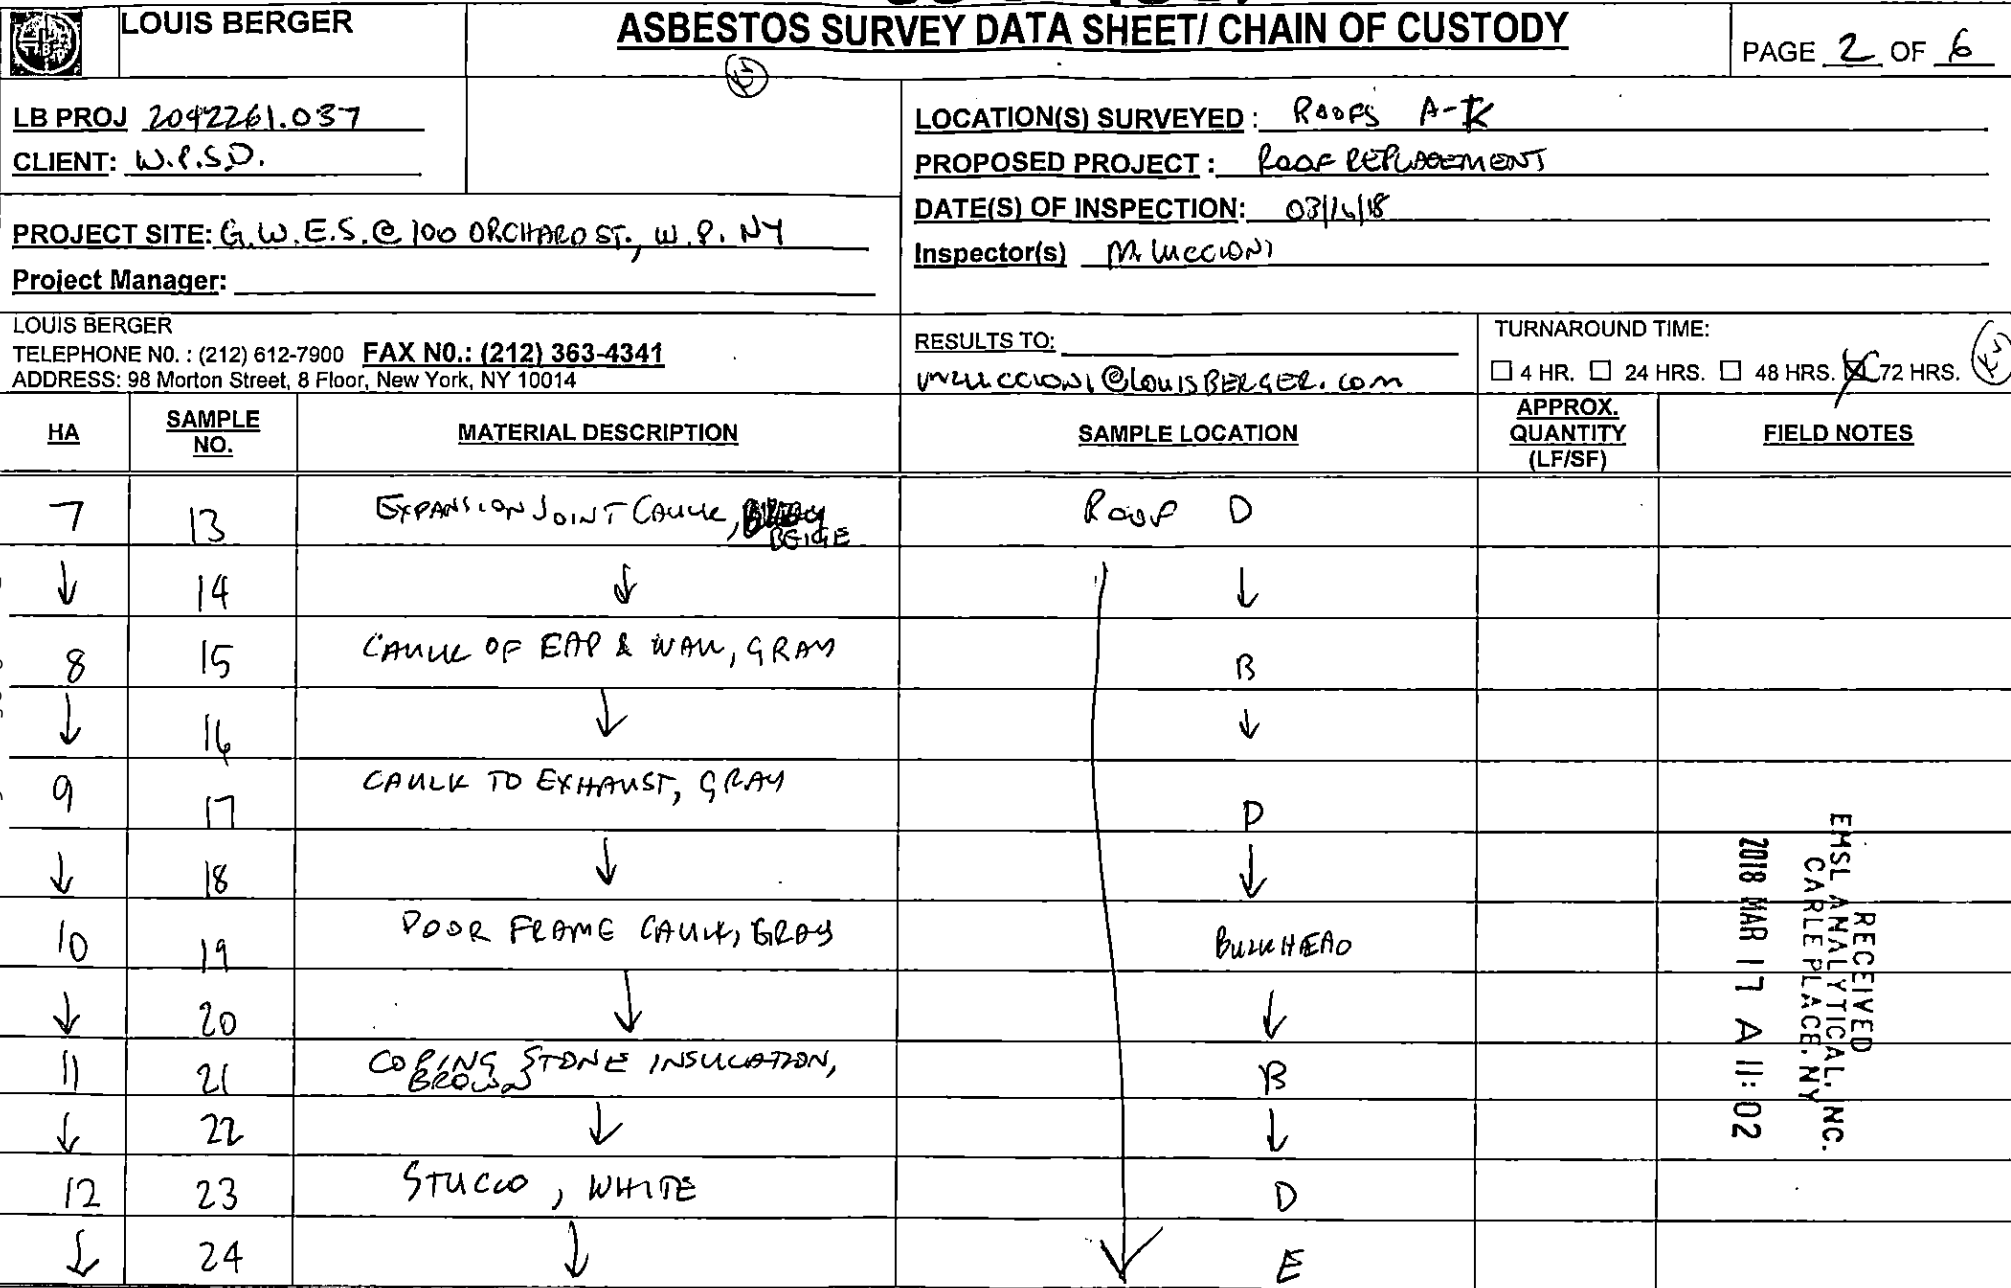 LOUIS BERGER
ASBESTOS SURVEY DATA SHEET/ CHAIN OF CUSTODY
PAGE 2 OF 6
LB PROJ 2042261.037
CLIENT: W.P.S.D.
LOCATION(S) SURVEYED : ROOFS A-K
PROPOSED PROJECT : ROOF REPLACEMENT
DATE(S) OF INSPECTION: 03/16/18
PROJECT SITE: G.W.E.S. @ 100 ORCHARD ST., W.P. NY
Inspector(s) M. LUCCIONI
Project Manager:
LOUIS BERGER
TELEPHONE N0. : (212) 612-7900 FAX N0.: (212) 363-4341
ADDRESS: 98 Morton Street, 8 Floor, New York, NY 10014
RESULTS TO:
mluccioni@LOUISBERGER.COM
TURNAROUND TIME:
☐ 4 HR. ☐ 24 HRS. ☐ 48 HRS. ☒ 72 HRS.
HA SAMPLE NO. MATERIAL DESCRIPTION SAMPLE LOCATION APPROX. QUANTITY (LF/SF) FIELD NOTES
7 13 EXPANSION JOINT CAULK, BEIGE ROOF D
↓ 14 ↓ ↓
8 15 CAULK OF EAP & WALL, GRAY B
↓ 16 ↓ ↓
9 17 CAULK TO EXHAUST, GRAY D
↓ 18 ↓ ↓
10 19 DOOR FRAME CAULK, GRAY BULKHEAD
↓ 20 ↓ ↓
11 21 COPING STONE INSULATION, BROWN B
↓ 22 ↓ ↓
12 23 STUCCO, WHITE D
↓ 24 ↓ E
RECEIVED
EMSL ANALYTICAL, INC.
CARLE PLACE, NY
2018 MAR 17 A 11:02